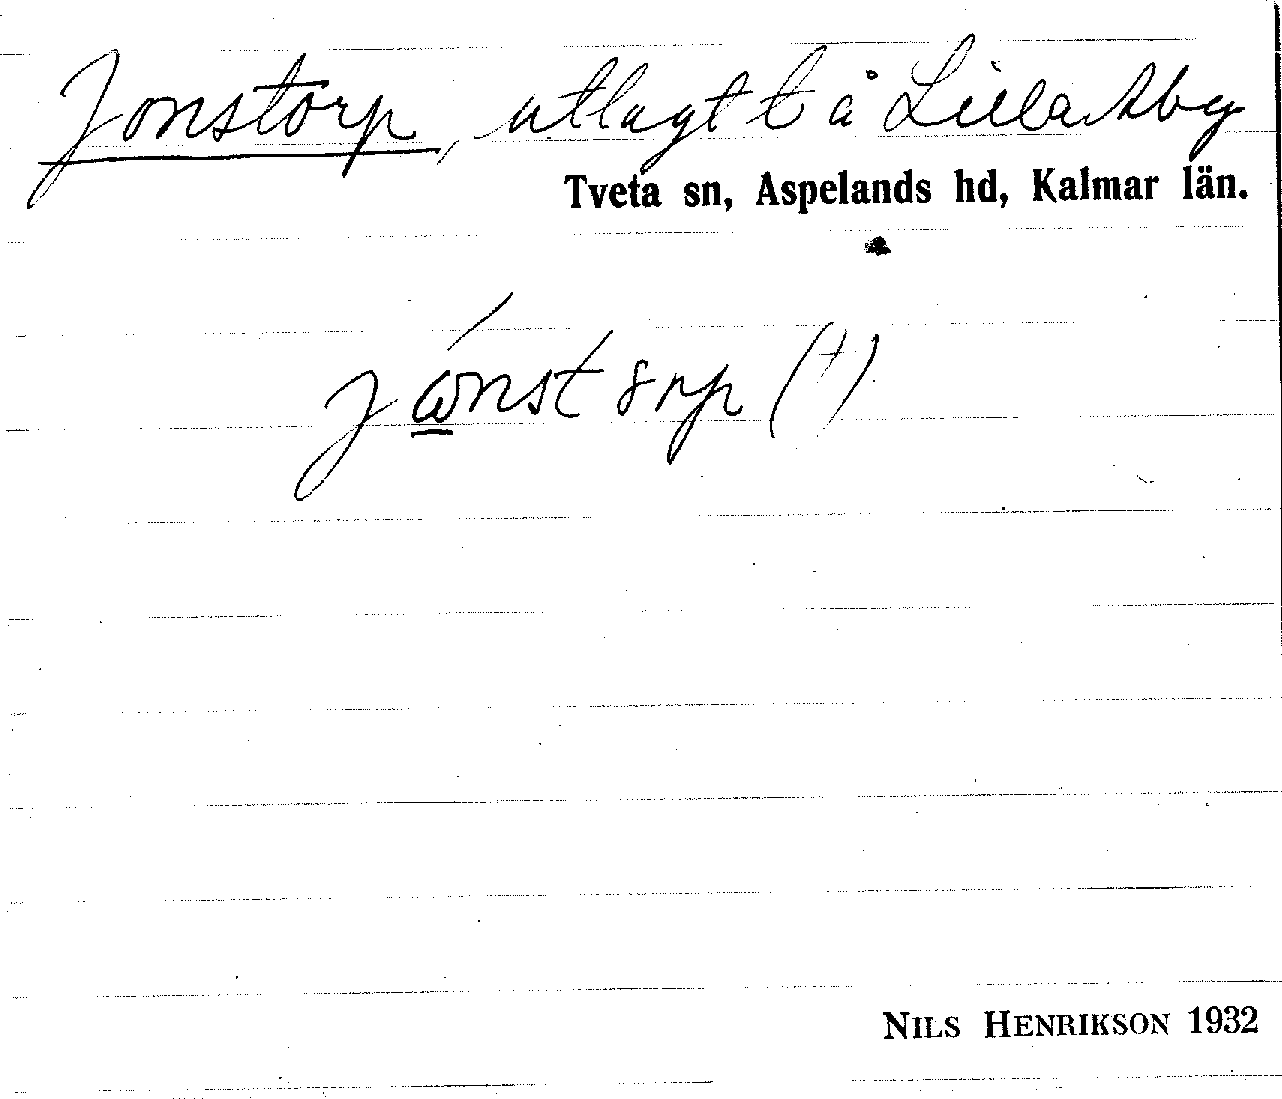 Jonstorp, utlagt t å Lilla Aby
Tveta sn, Aspelands hd, Kalmar län.
jωnst ȣrp (+)
NILS HENRIKSON 1932